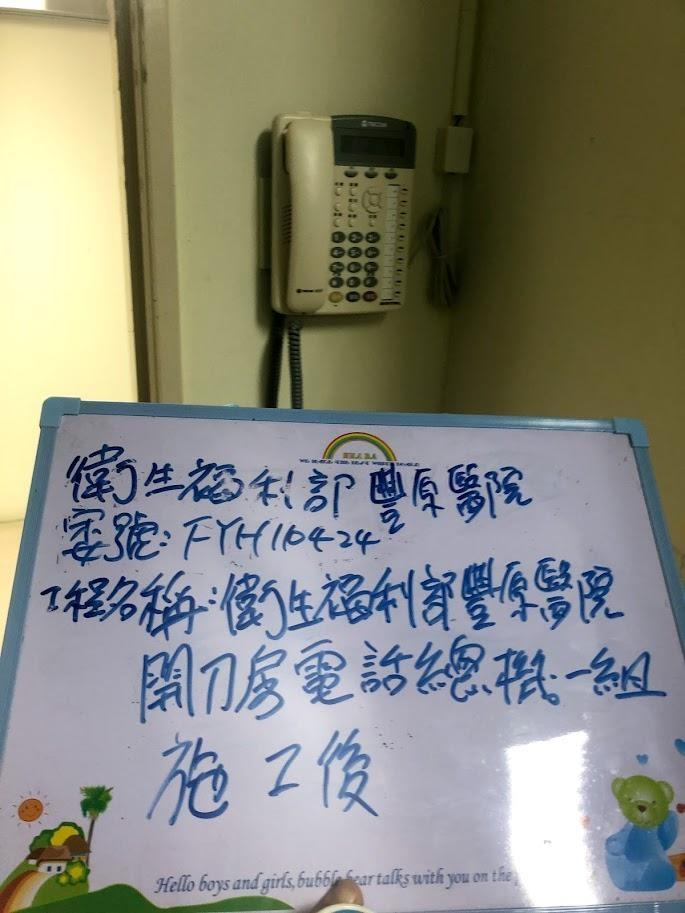 TECOM
衛生福利部豐原醫院
案號:FYH110424
工程名稱:衛生福利部豐原醫院
開刀房電話總機一組
施工後
Hello boys and girls,bubble bear talks with you on the